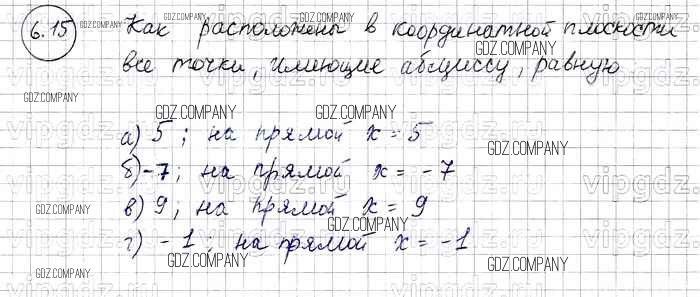 6.15 Как расположены в координатной плоскости
все точки, имеющие абсциссу, равную
а) 5; на прямой x = 5
б) -7; на прямой x = -7
в) 9; на прямой x = 9
г) -1; на прямой x = -1
GDZ.COMPANY
GDZ.COMPANY
GDZ.COMPANY
GDZ.COMPANY
GDZ.COMPANY
GDZ.COMPANY
GDZ.COMPANY
GDZ.COMPANY
GDZ.COMPANY
GDZ.COMPANY
GDZ.COMPANY
GDZ.COMPANY
GDZ.COMPANY
vipgdz.ru